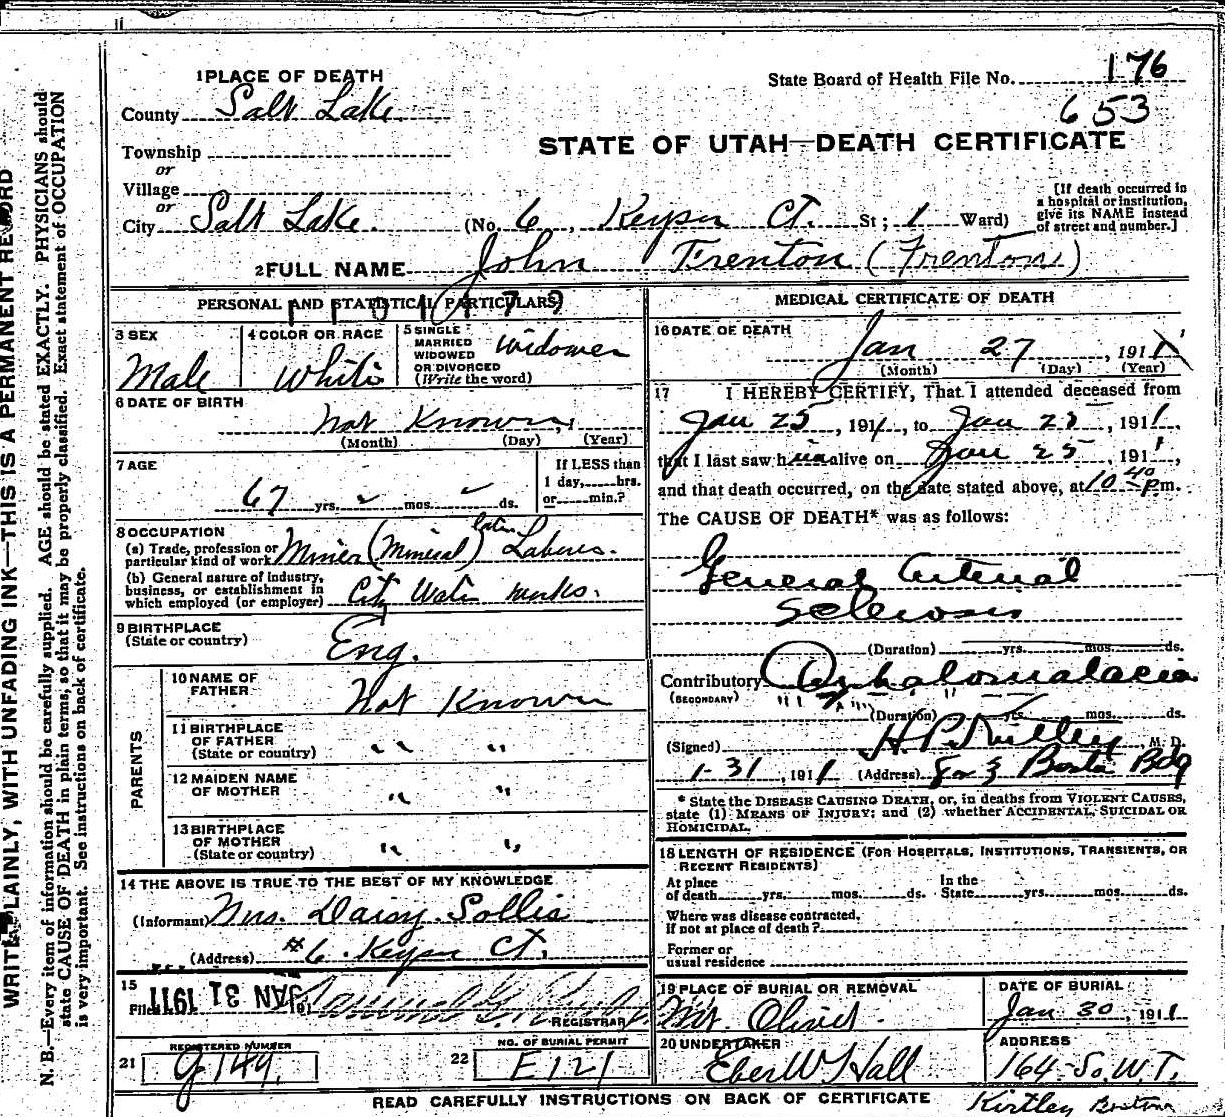 1 PLACE OF DEATH
State Board of Health File No. 176
653
County Salt Lake.
STATE OF UTAH—DEATH CERTIFICATE
Township
or
Village
or
City Salt Lake. (No. 6, Keyser Ct. St; 1 Ward)
[If death occurred in a hospital or institution, give its NAME instead of street and number.]
2 FULL NAME John Trenton (Frenton)
PERSONAL AND STATISTICAL PARTICULARS
3 SEX
Male
4 COLOR OR RACE
White
5 SINGLE
MARRIED
WIDOWED
OR DIVORCED
(Write the word)
Widower
6 DATE OF BIRTH
Not Known,
(Month) (Day) (Year)
7 AGE
67 yrs. mos. ds.
If LESS than
1 day, hrs.
or min.?
8 OCCUPATION
(a) Trade, profession or
particular kind of work Miner (Mineral) Laborer.
(b) General nature of industry,
business, or establishment in
which employed (or employer) City Water works.
9 BIRTHPLACE
(State or country)
Eng.
PARENTS
10 NAME OF
FATHER
Not Known
11 BIRTHPLACE
OF FATHER
(State or country) " "
12 MAIDEN NAME
OF MOTHER " "
13 BIRTHPLACE
OF MOTHER
(State or country) " "
14 THE ABOVE IS TRUE TO THE BEST OF MY KNOWLEDGE
(Informant) Mrs. Daisy Sollis
(Address) #6 Keyser Ct.
15
Filed JAN 31 1911
REGISTRAR
REGISTERED NUMBER
21 G 149.
NO. OF BURIAL PERMIT
22 E121
MEDICAL CERTIFICATE OF DEATH
16 DATE OF DEATH
Jan 27, 1911
(Month) (Day) (Year)
17 I HEREBY CERTIFY, That I attended deceased from
Jan 25, 1911, to Jan 25, 1911,
that I last saw him alive on Jan 25, 1911,
and that death occurred, on the date stated above, at 10 40 P.m.
The CAUSE OF DEATH* was as follows:
General Arterial
Sclerosis
(Duration) yrs. mos. ds.
Contributory
(SECONDARY)
(Duration) yrs. mos. ds.
(Signed) H. P. Kirtley M. D.
1-31, 1911 (Address) Boston Bdg
* State the DISEASE CAUSING DEATH, or, in deaths from VIOLENT CAUSES,
state (1) MEANS OF INJURY; and (2) whether ACCIDENTAL, SUICIDAL OR
HOMICIDAL.
18 LENGTH OF RESIDENCE (FOR HOSPITALS, INSTITUTIONS, TRANSIENTS, OR
RECENT RESIDENTS)
At place
of death yrs. mos. ds.
In the
State yrs. mos. ds.
Where was disease contracted,
if not at place of death?
Former or
usual residence
19 PLACE OF BURIAL OR REMOVAL
Mt. Olivet.
DATE OF BURIAL
Jan 30, 1911
20 UNDERTAKER
Eber W Hall
ADDRESS
164-So. W. T.
READ CAREFULLY INSTRUCTIONS ON BACK OF CERTIFICATE
Kirtley Boston
WRITE PLAINLY, WITH UNFADING INK—THIS IS A PERMANENT RECORD
N. B.—Every item of information should be carefully supplied. AGE should be stated EXACTLY. PHYSICIANS should
state CAUSE OF DEATH in plain terms, so that it may be properly classified. Exact statement of OCCUPATION
is very important. See instructions on back of certificate.